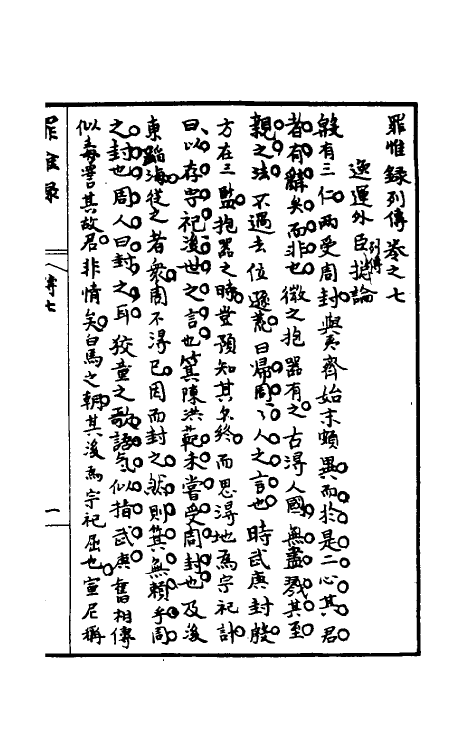 罪惟錄列傳卷之七
逸運外臣列傳總論
殷有三仁兩受周封與夷齊始末頗異而於是二心其君
者有辭矣而非也微之抱器有之古得人國無盡戮其至
親之法不過去位遜荒曰歸周周人之言也時武庚封殷
方在三監抱器之時豈預知其不終而思得地為宗祀計
曰以存宗祀後世之言也箕陳洪範未嘗受周封也及後
東蹈海從之者眾周不得已因而封之然則箕無賴乎周
之封也周人曰封之耳狡童之歌語氣似指武庚舊相傳
似毒詈其故君非情矣白馬之朝其後為宗祀屈也宣尼稱
罪惟錄
傳七
一